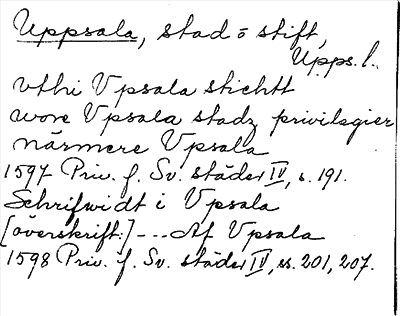 Uppsala, stad o stift,
Upps. l.
vthi Vpsala stichtt
wore Vpsala stadz privilegier
närmere Vpsala
1597 Priv. f. Sv. städer IV, s. 191.
Schrifwidt i Vpsala
[överskrift:] --- Af Vpsala
1598 Priv. f. Sv. städer IV, ss. 201, 207.